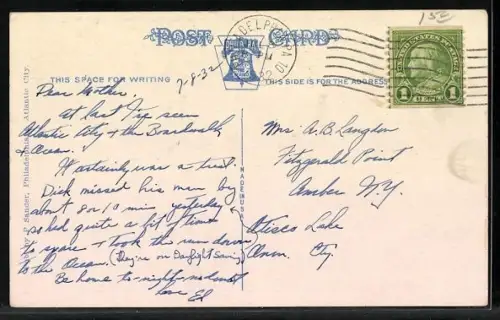 POST CARD
THIS SPACE FOR WRITING
THIS SIDE IS FOR THE ADDRESS
7-8-32
152
PHILADELPHIA, PA.
UNITED STATES POSTAGE
1 CENT 1
Dear Mother,
At last I've seen
Atlantic City & the Boardwalk &
Ocean.
It certainly was a treat.
Dick missed his man by
about 8 or 10 min yesterday
so had quite a bit of time
to spare & took the run down
to the Ocean. (They're on Daylight Saving)
Be home to-night - no doubt
love El
Mrs A.B. Langdon
Fitzgerald Point
Amber N.Y.
Otisco Lake
Onon. Cty.
MADE IN U.S.A.
Sander, Philadelphia & Atlantic City.